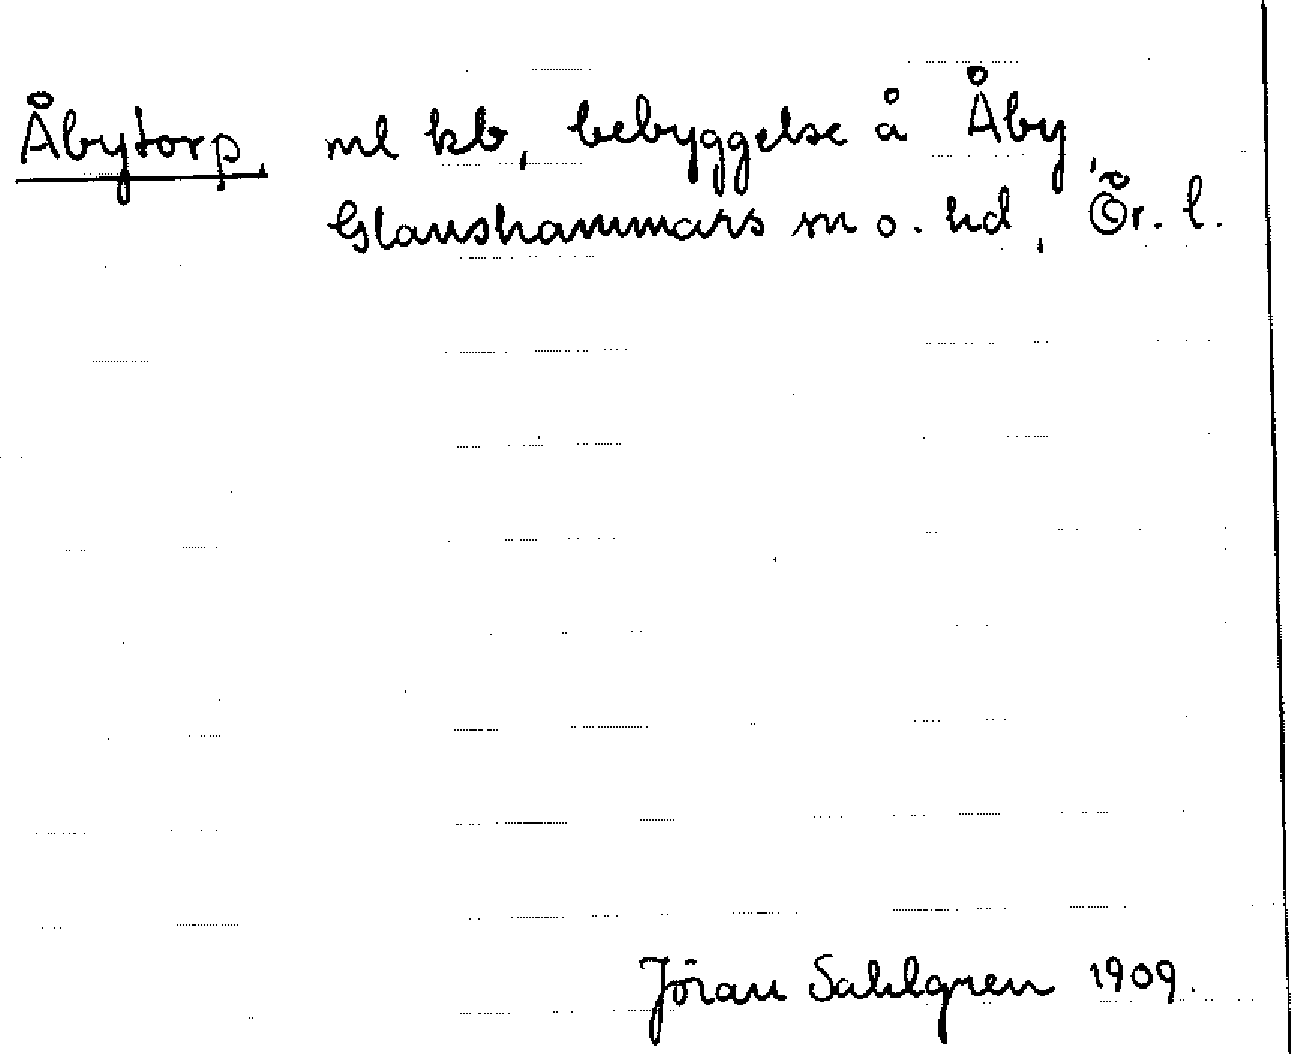 Åbytorp, ml kb, bebyggelse å Åby,
Glanshammars sn o. hd, Ör. l.
Jöran Sahlgren 1909.